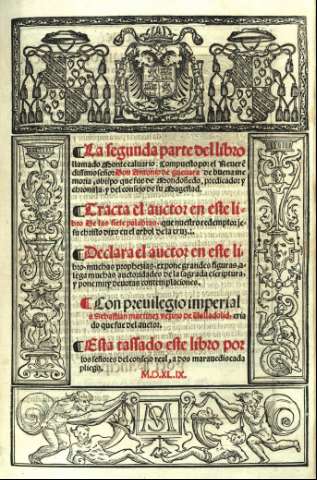 ¶La segunda parte del libro
llamado Monte caluario. Compuesto por el Reuerē
dissimo señor Don Antonio de gueuara de buena me
moria, obispo que fue de Mondoñedo, predicador y
chronista, y del consejo de su Magestad.
¶Tracta el auctor en este li
bro De las siete palabras, que nuestro redemptor je
su christo dixo en el arbol de la cruz.
¶Declara el auctor en este li
bro muchas prophesias, expone grandes figuras, a
lega muchas auctoridades de la sagrada escriptura
y pone muy deuotas contemplaciones.
¶Con preuilegio imperial
a Sebastian martinez vezino de Valladolid, cria
do que fue del auctor.
¶Esta tassado este libro por
los señores del consejo real, a dos marauedis cada
pliego.
M.D.XL.IX.